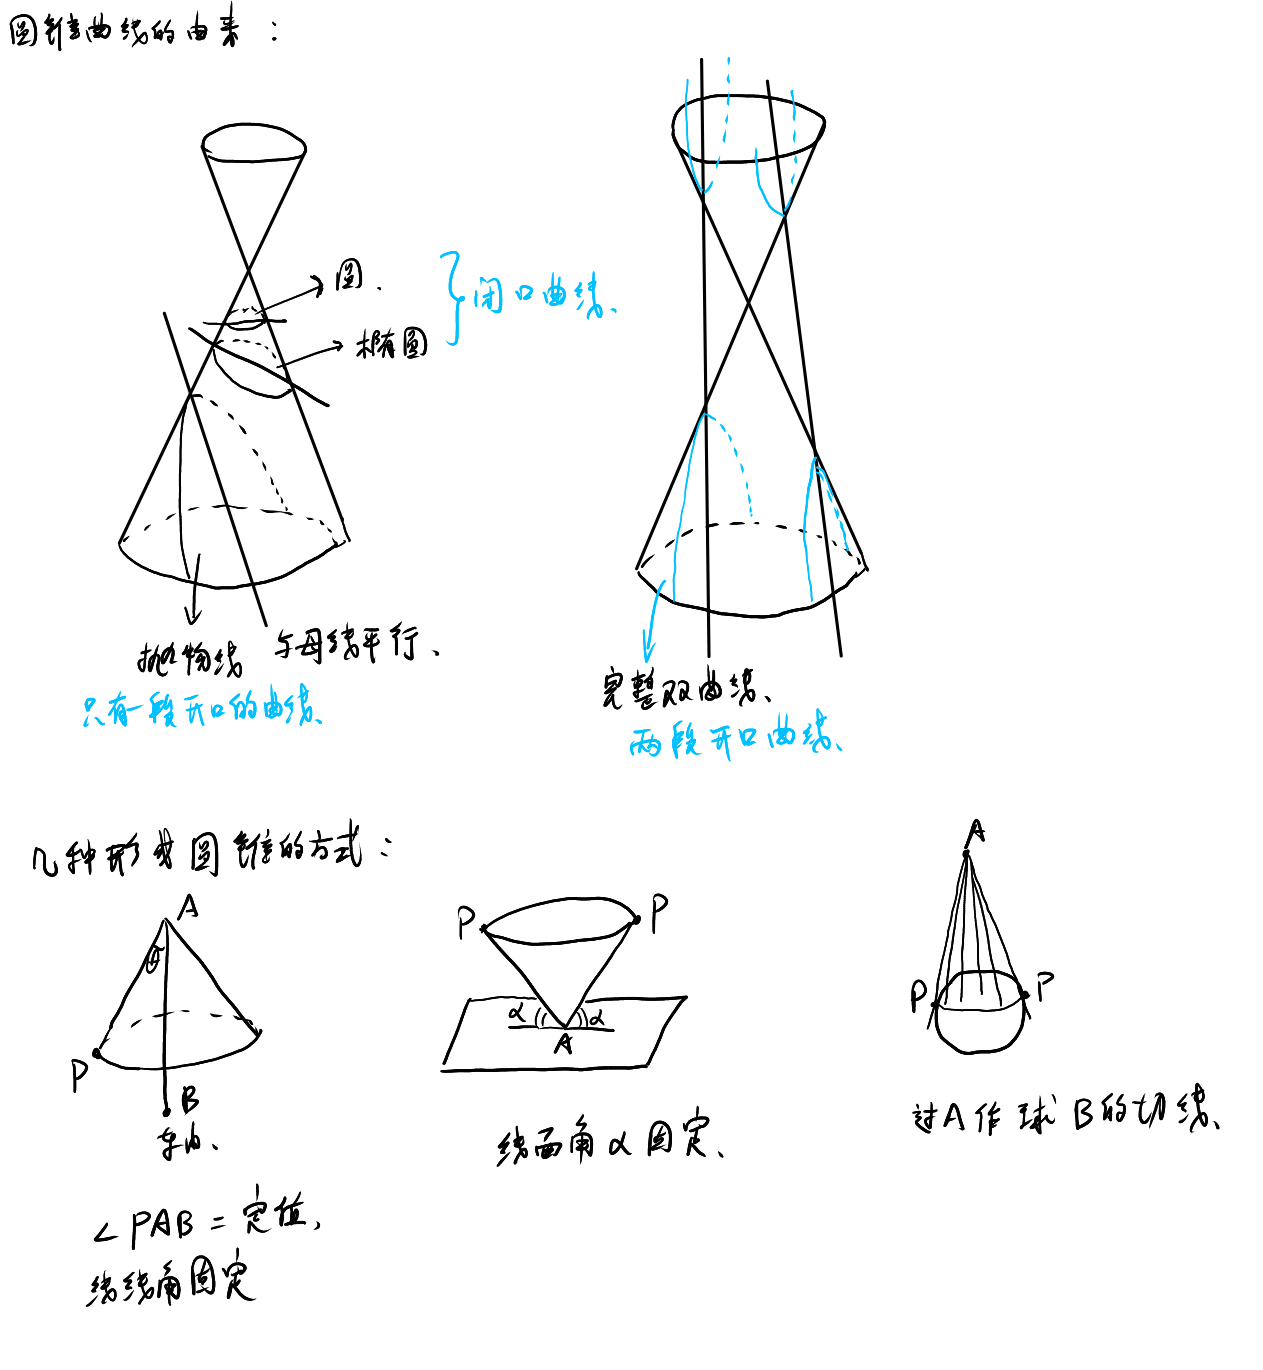 圆锥曲线的由来：
圆.
椭圆
闭口曲线、
抛物线
与母线平行、
只有一段开口的曲线、
完整双曲线、
两段开口曲线、
几种形成圆锥的方式：
A
θ
P
B
轴、
∠PAB=定值，
线线角固定
P
P
α
α
A
线面角α固定、
A
P
P
过A作球B的切线、